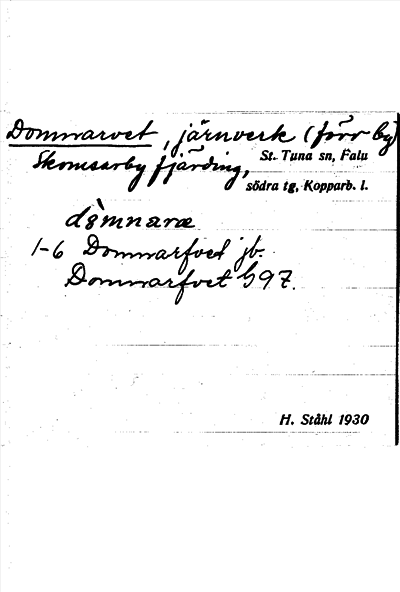 Domnarvet, järnverk (förr by)
Skomsarby fjärding, St. Tuna sn, Falu
södra tg, Kopparb. l.
dòmnaræ
1-6 Domnarfvet jb.
Domnarfvet G 97.
H. Ståhl 1930